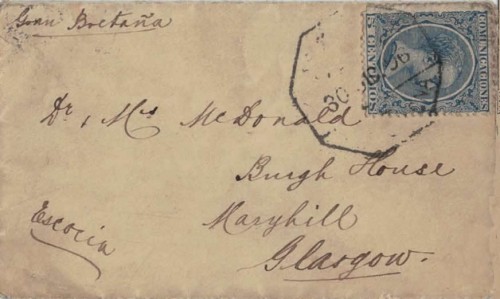 Gran Bretaña
COMUNICACIONES
5 CENTIMOS
30
96
Dr & Mrs McDonald
Burgh House
Maryhill
Glasgow.
Escocia